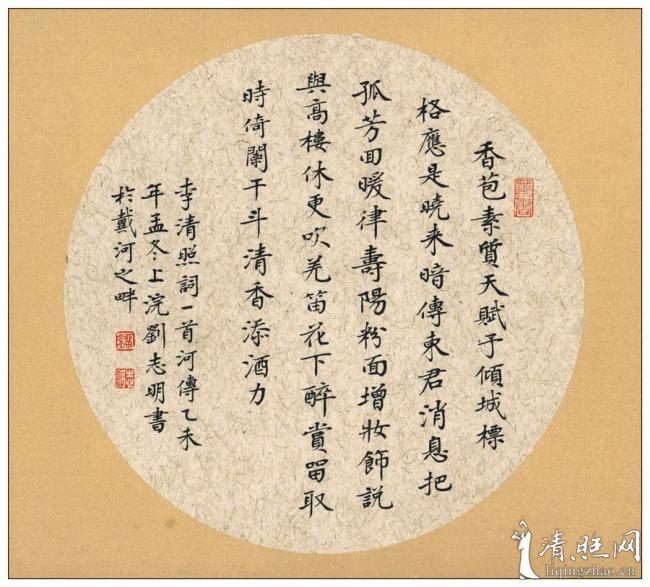 香苞素質天賦予傾城標
格應是曉来暗傳東君消息把
孤芳回暖律壽陽粉面增妝飾説
與高樓休更吹羌笛花下醉賞留取
時倚闌干斗清香添酒力
李清照詞一首河傳乙未
年孟冬上浣劉志明書
於戴河之畔
清照网
liqingzhao.cn